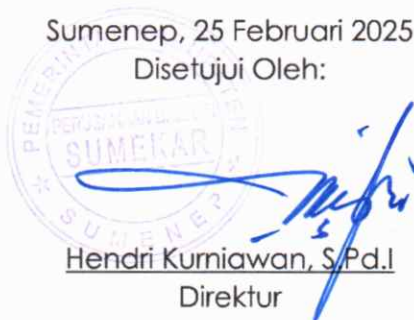 Sumenep, 25 Februari 2025
Disetujui Oleh:
PEMERINTAH
SUMEKAR
SUMENEP
Hendri Kurniawan, S.Pd.I
Direktur